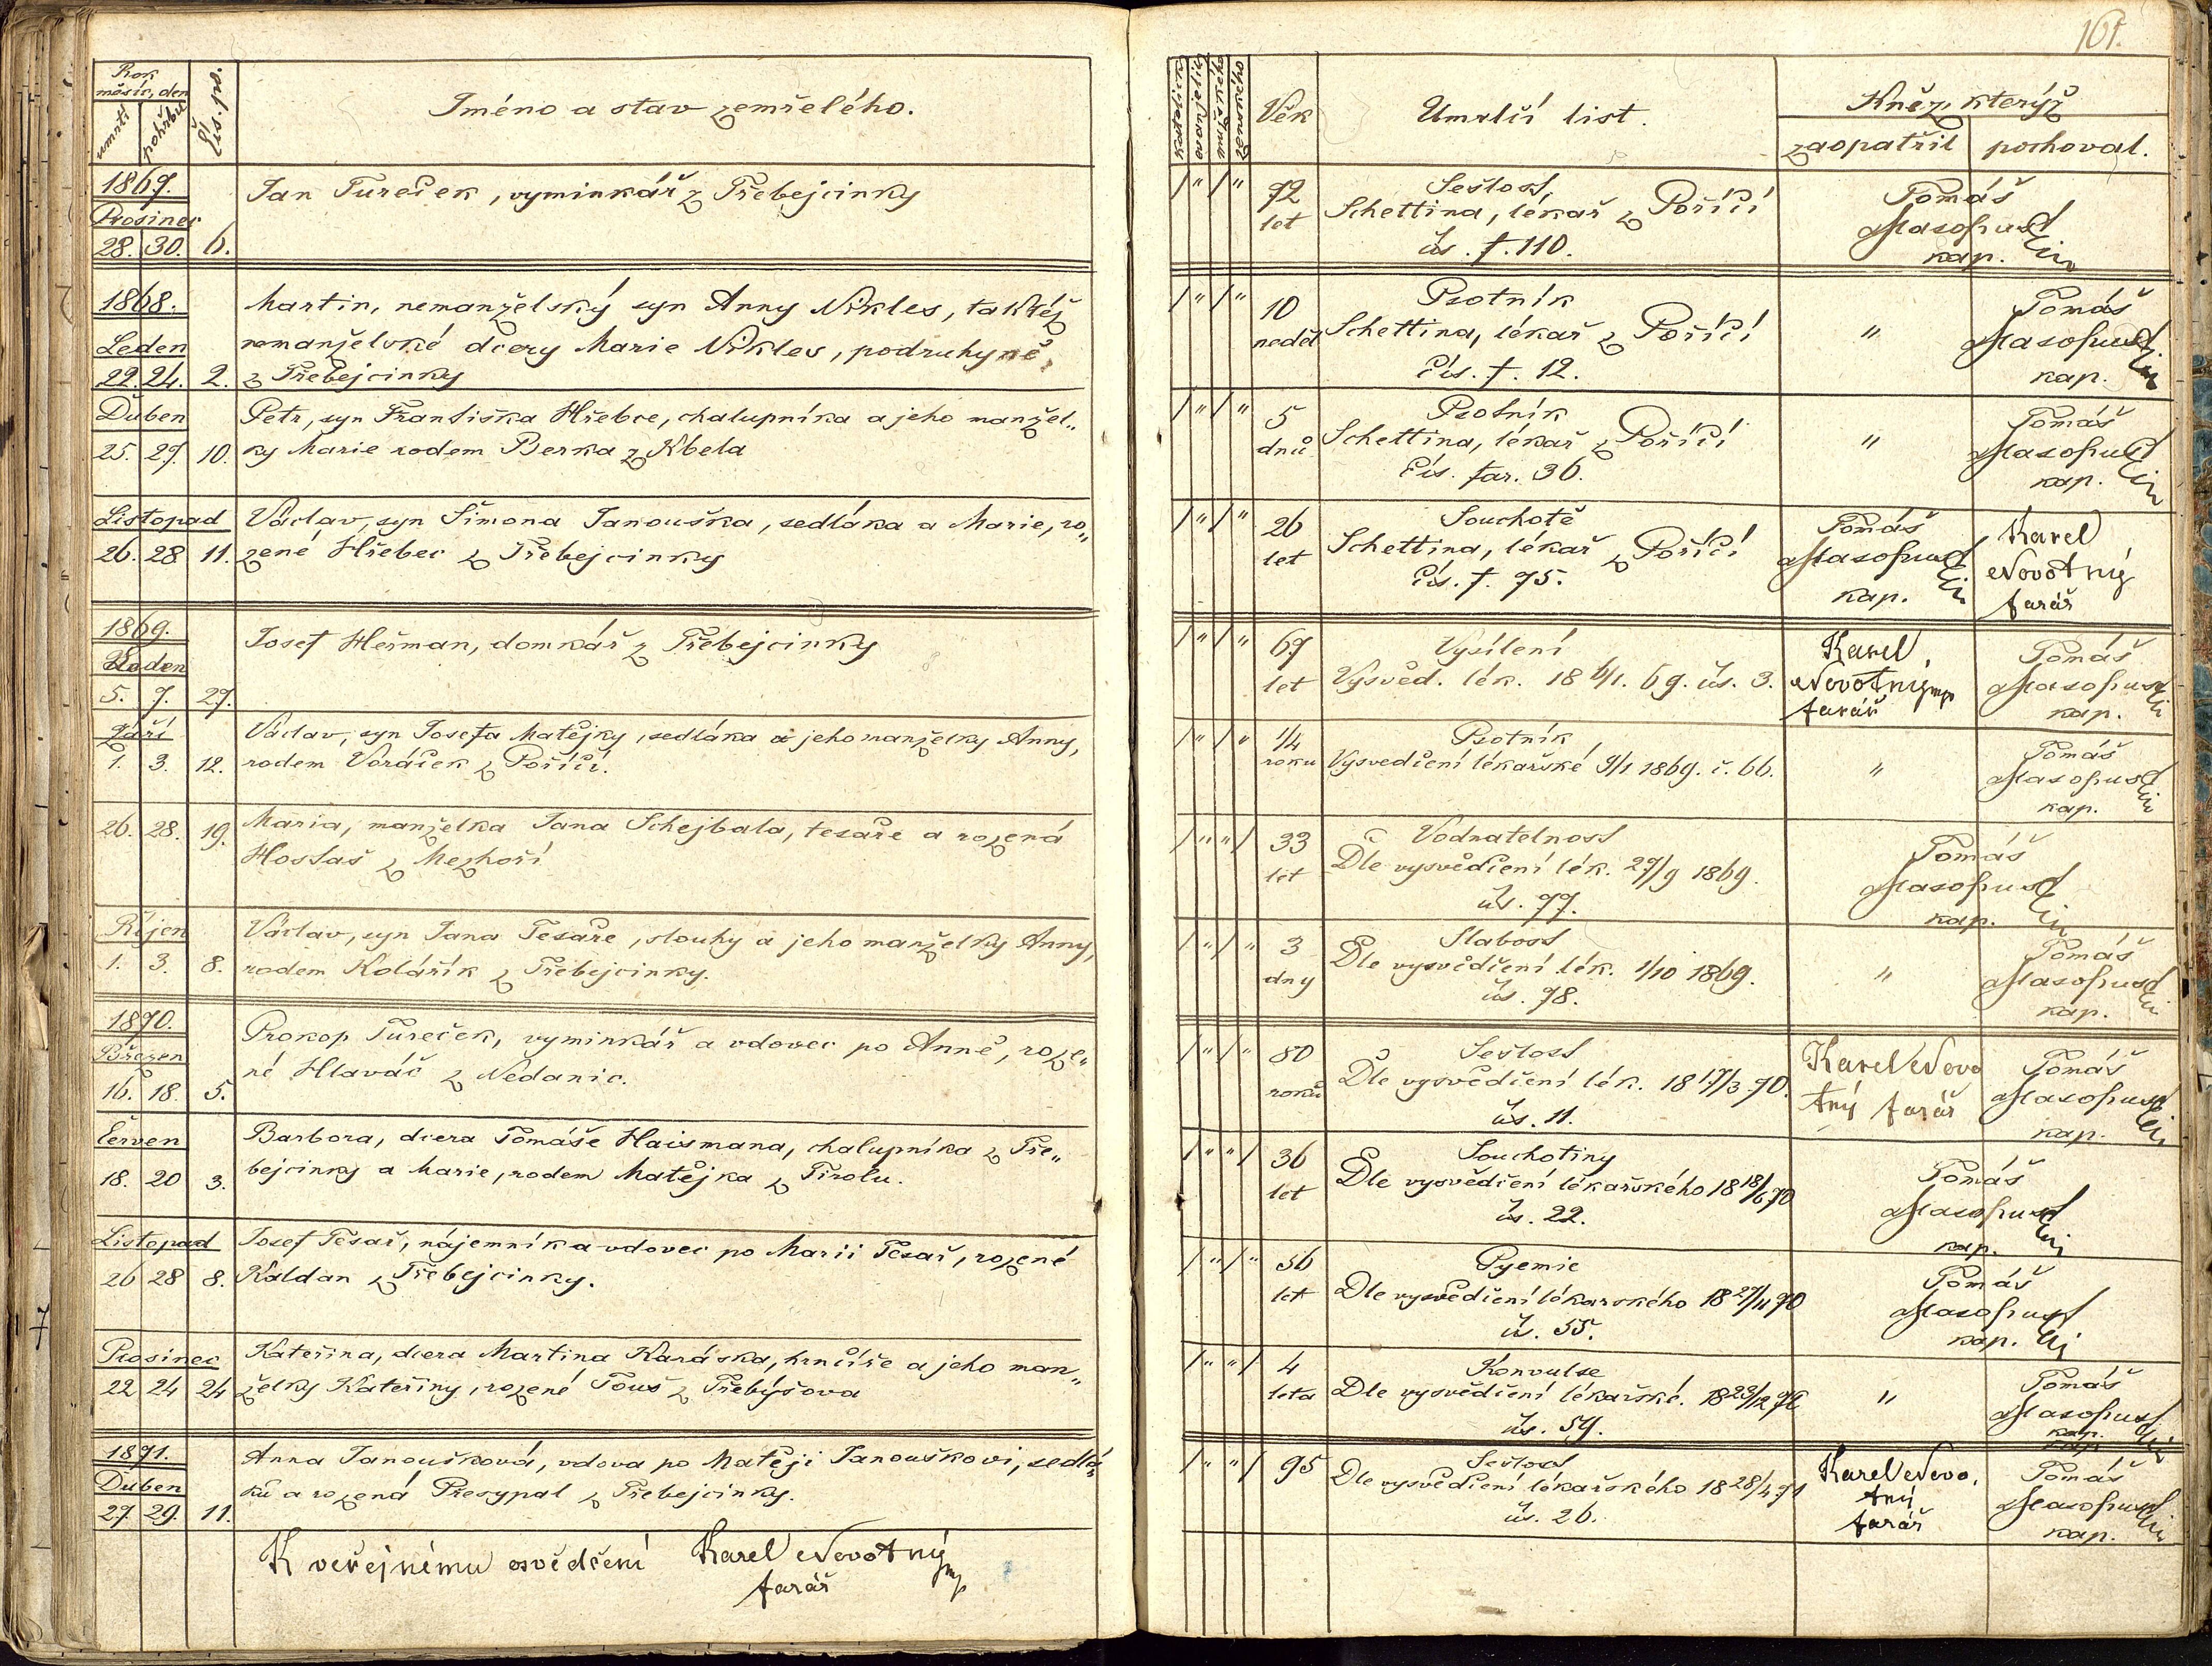 161.
Rok
měsíc, den
úmrtí
pohřbu
Čís. po.
Jméno a stav zemřelého.
katolické
evanjelické
mužského
ženského
Věk
Umrlčí list.
Kněz, kterýž
zaopatřil
pochoval.
1867.
Prosinec
28. 30. 6.
Jan Tureček, vyminkář z Třebejcinky
/ " / "
72
let
Sešlost,
Schettina, lékař z Poříčí
čís. f. 110.
Tomáš
Masopust
kap.
1868.
Leden
22. 24. 2.
Martin, nemanželský syn Anny Nikles, taktéž
nemanželské dcery Marie Nikles, podruhyně
z Třebejcinky
/ " / "
10
neděl
Psotník
Schettina, lékař z Poříčí
Čís. f. 12.
"
Tomáš
Masopust
kap.
Duben
25. 27. 10.
Petr, syn Františka Hřebce, chalupníka a jeho manžel„
ky Marie rodem Berka z Kbela
/ " / "
5
dnů
Psotník
Schettina, lékař z Poříčí
Čís. far. 36.
"
Tomáš
Masopust
kap.
Listopad
26. 28. 11.
Václav, syn Šimona Janouška, sedláka a Marie, ro„
zené Hřebec z Třebejcinky
/ " / "
26
let
Souchotě
Schettina, lékař z Poříčí
Čís. f. 75.
Tomáš
Masopust
kap.
Karel
Novotný
farář
1869.
Leden
5. 7. 27.
Josef Heřman, domkář z Třebejcinky
/ " / "
67
let
Vysílení
Vysvěd. lék. 18 6/1. 69. čís. 3.
Karel
Novotný mp
farář
Tomáš
Masopust
kap.
Září
1. 3. 12.
Václav, syn Josefa Matějky, sedláka a jeho manželky Anny,
rodem Voráček z Poříčí.
/ " / "
1/4
roku
Psotník
Vysvedčení lékařské 9/1 1869. č. 66.
"
Tomáš
Masopust
kap.
26. 28. 19.
Maria, manželka Jana Schejbala, tesaře a rozená
Hostaš z Mezhoří
/ " " /
33
let
Vodnatelnost
Dle vysvědčení lék. 27/9 1869.
čís. 77.
Tomáš
Masopust
kap.
Říjen
1. 3. 8.
Václav, syn Jana Tesaře, slouhy a jeho manželky Anny,
rodem Kolářík z Třebejcinky.
/ " / "
3
dny
Slabost
Dle vysvědčení lék. 1/10 1869.
čís. 78.
"
Tomáš
Masopust
kap.
1870.
Březen
16. 18. 5.
Prokop Tureček, vyminkář a vdovec po Anně, roze„
né Hlaváč z Nedanic.
/ " / "
80
roků
Sešlost
Dle vysvědčení lék. 18 17/3 70.
čís. 11.
Karel Novo
tný farář
Tomáš
Masopust
kap.
Červen
18. 20 3.
Barbora, dcera Tomáše Haismana, chalupníka z Tře„
bejcinky a Marie, rodem Matějka z Tirolu.
/ " " /
36
let
Souchotiny
Dle vysvědčení lékařského 18 18/6 70
čís. 22.
Tomáš
Masopust
kap.
Listopad
26 28 8.
Josef Tesař, nájemník a vdovec po Marii Tesař, rozené
Kaldan z Třebejcinky.
/ " / "
56
let
Pyemie
Dle vysvědčení lékarského 18 27/11 70
čís. 55.
Tomáš
Masopust
kap.
Prosinec
22 24 24
Kateřina, dcera Martina Karáska, hrnčíře a jeho man„
želky Kateřiny, rozené Touš z Třebýšova
/ " " /
4
leta
Konvulse
Dle vysvědčení lékařské. 18 23/12 70
čís. 59.
"
Tomáš
Masopust
kap.
1871.
Duben
27. 29. 11.
Anna Janoušková, vdova po Matěji Janouškovi, sedlá„
ku a rozená Presypal z Třebejcinky.
/ " " /
95
Sešlost
Dle vysvědčení lékařského 18 28/4 71
čís. 26.
Karel Novo,
tný
farář
Tomáš
Masopust
kap.
K veřejnému osvědčení Karel Novotný mp
farář